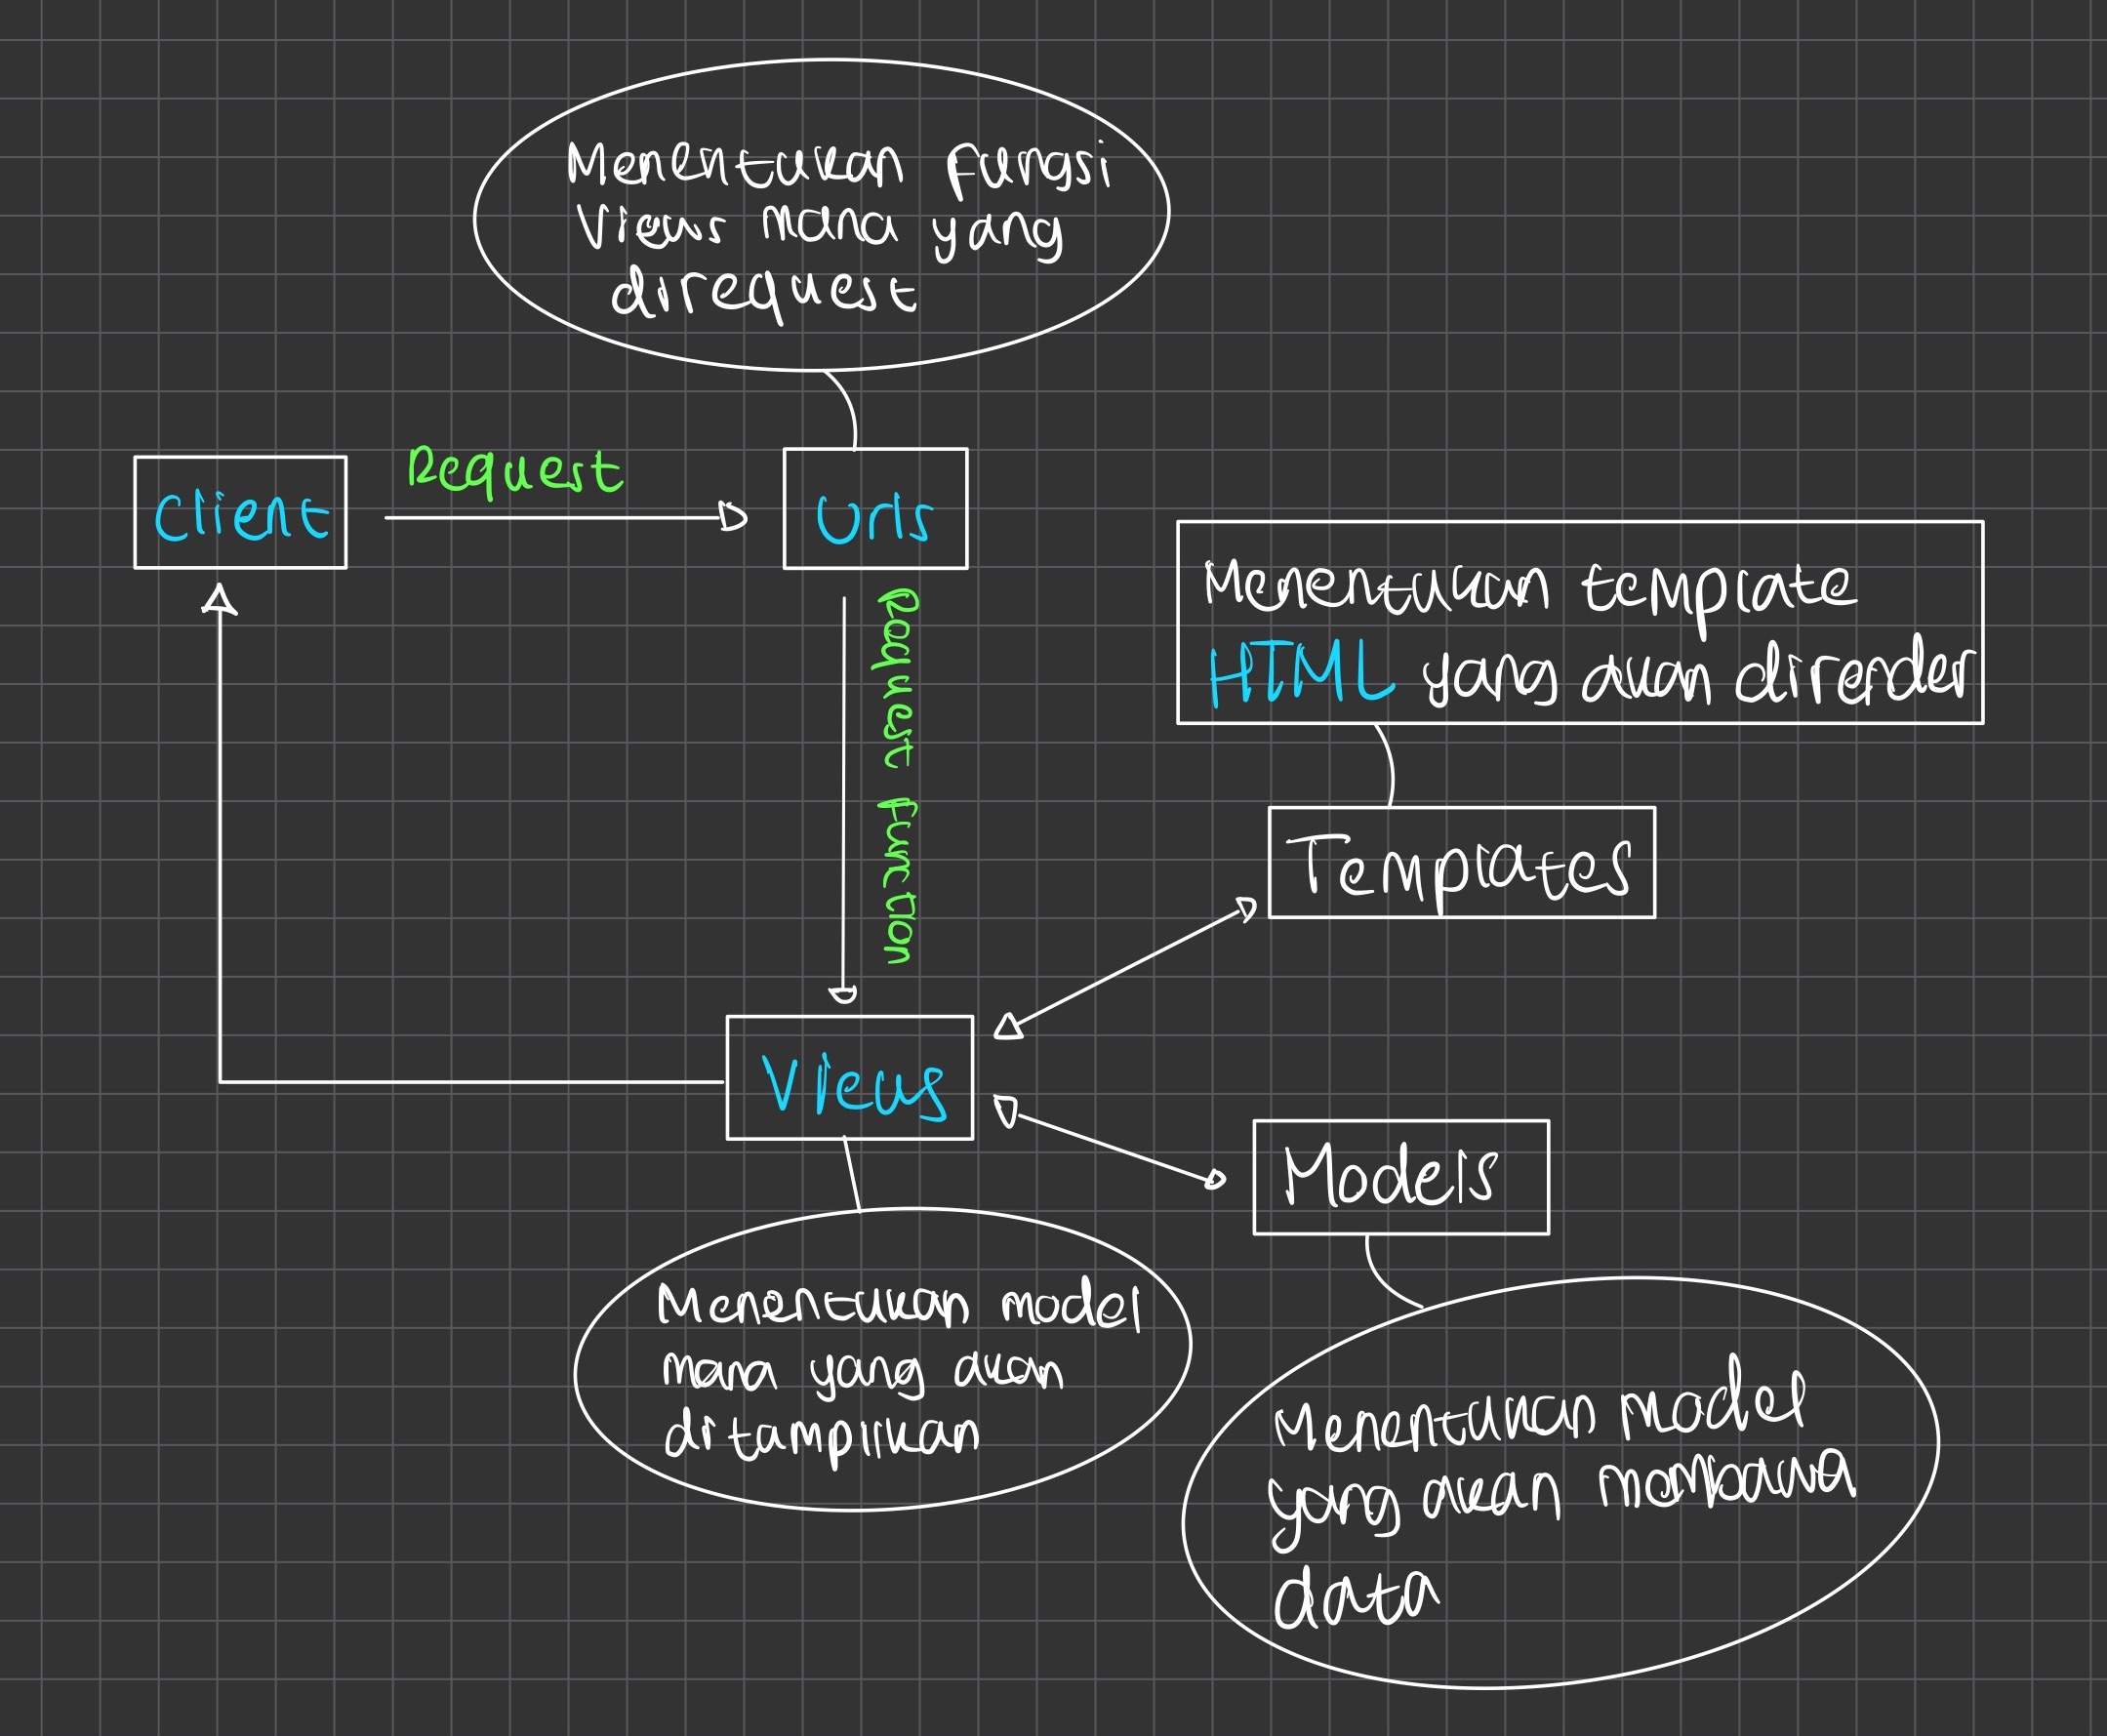 Menentukan fungsi
views mana yang
direquest
Client
Request
Urls
Request Function
Menentukan template
HTML yang akan dirender
Templates
Views
Models
Menentukan model
mana yang akan
ditampilkan
Menentukan model
yang akan membawa
data